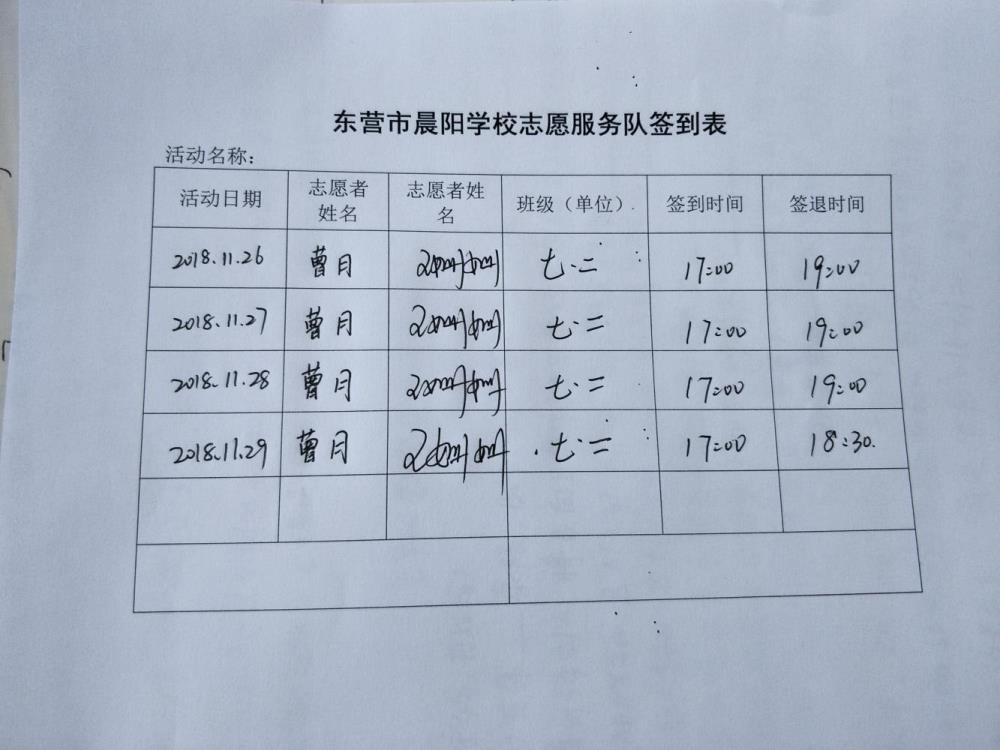 东营市晨阳学校志愿服务队签到表
活动名称：
活动日期 志愿者姓名 志愿者姓名 班级（单位） 签到时间 签退时间
2018.11.26 曹月 七.二 17:00 19:00
2018.11.27 曹月 七.二 17:00 19:00
2018.11.28 曹月 七.二 17:00 19:00
2018.11.29 曹月 七.二 17:00 18:30.